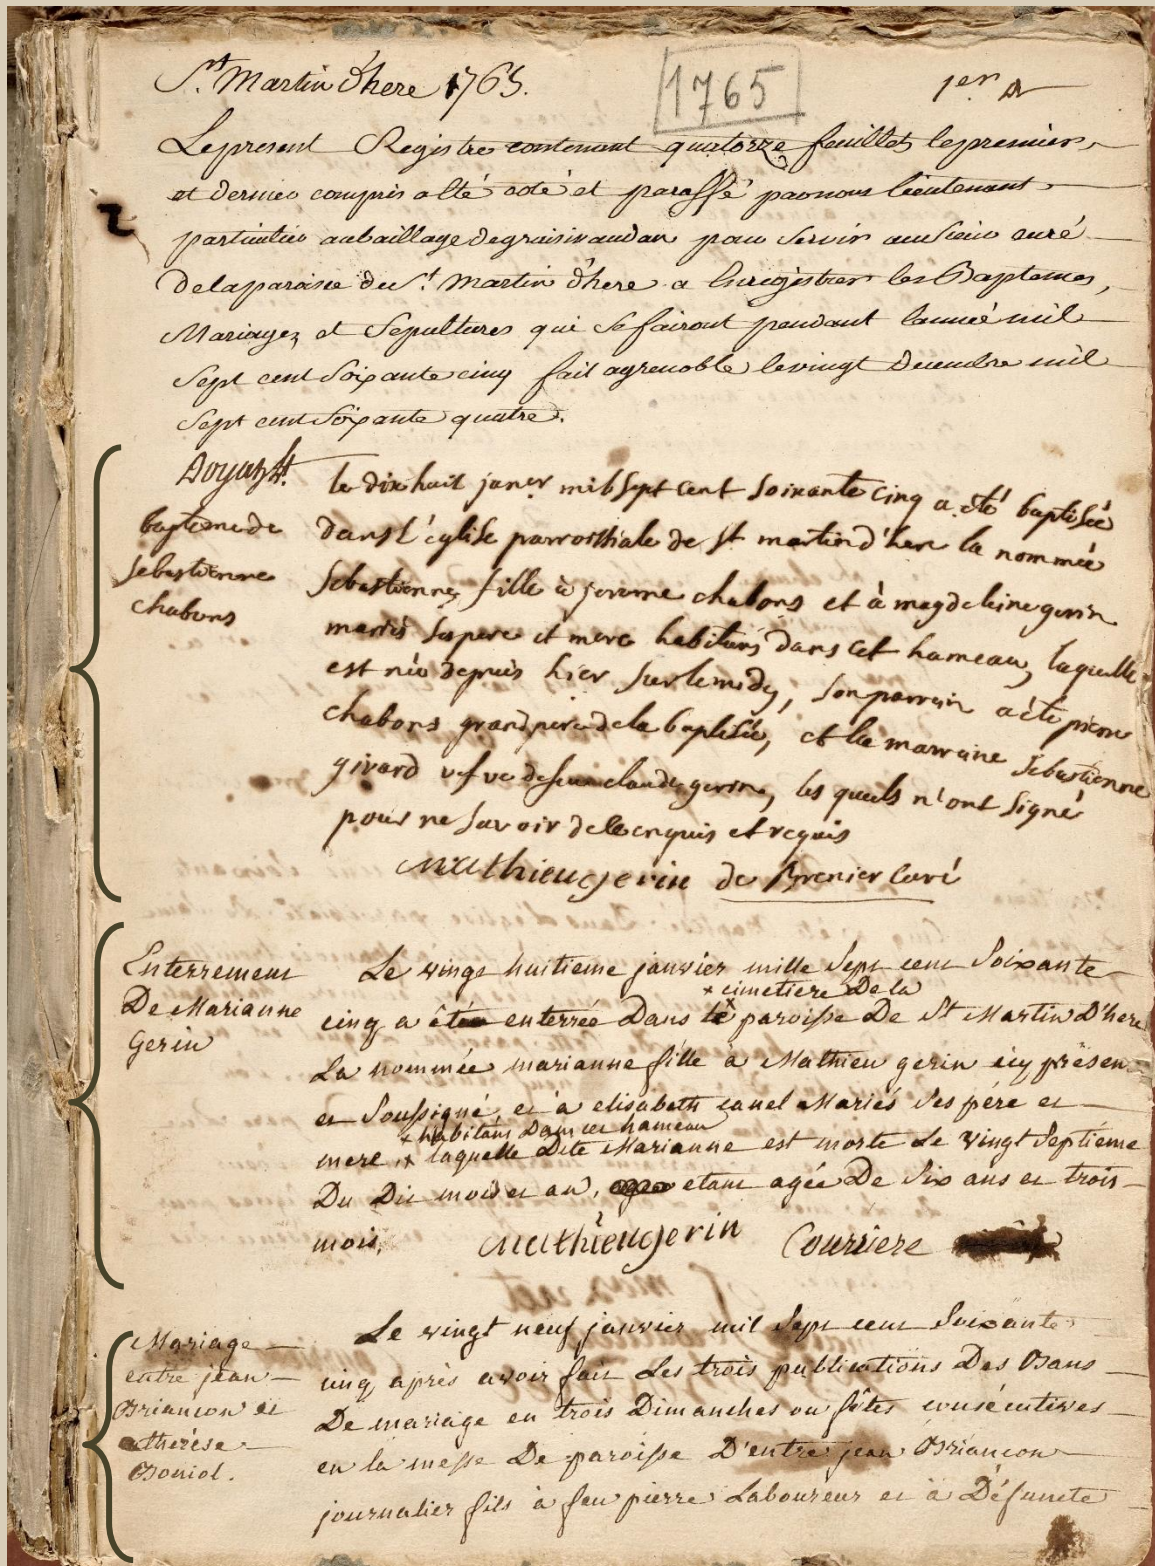 St. Martin d'here 1765.
1765
1er
Le present Registre contenant quatorze feuillets le premier
et dernier compris a été coté et paraffé par nous lieutenant
particulier au baillage de graisivaudan pour servir au sieur curé
de la paroisse de St. Martin d'here a Enregistrer les Baptemes,
Mariages et Sepultures qui se fairont pendant l'année mil
Sept cent Soixante cinq fait a grenoble le vingt Decembre mil
Sept cent Soixante quatre.
bapteme de
Sebastienne
chabons
le dix huit janer mil sept cent soixante cinq a été baptisée
dans l'église parrossiale de st martin d'here la nommée
Sebastienne, fille à jerome chabons et à magdeleine gerin
mariés ses pere et mere habitans dans cet hameau, laquelle
est née depuis hier sur le midy, son parrain a été pierre
chabons grand pere de la baptisée, et la marraine Sebastienne
girard vefve de feu claude gerin, les quels n'ont signé
pour ne savoir de ce enquis et requis
Mathieu gerin de Grenier curé
Enterrement
De Marianne
Gerin
Le vingt huitieme janvier mille Sept cent Soixante
× cimetiere De la
cinq a été enterrée Dans le × paroisse De St Martin D'here
La nommée marianne fille à Mathieu gerin icy présen
et Soussigné, et à elisabeth canel Mariés Ses pére et
× habitans Dans cet hameau
mere, × laquelle Dite Marianne est morte Le vingt Septieme
Du Dit mois et an, etant agée De Six ans et trois
mois.
Mathieu gerin Courriere
Mariage
entre jean
Briancon et
therése
Boniol.
Le vingt neuf janvier mil Sept cent Soixante
cinq après avoir fait Les trois publications Des Bans
De mariage en trois Dimanches ou fêtes consécutives
en la messe De paroisse D'entre jean Briancon
journalier fils à feu pierre Laboureur et à Défuncte